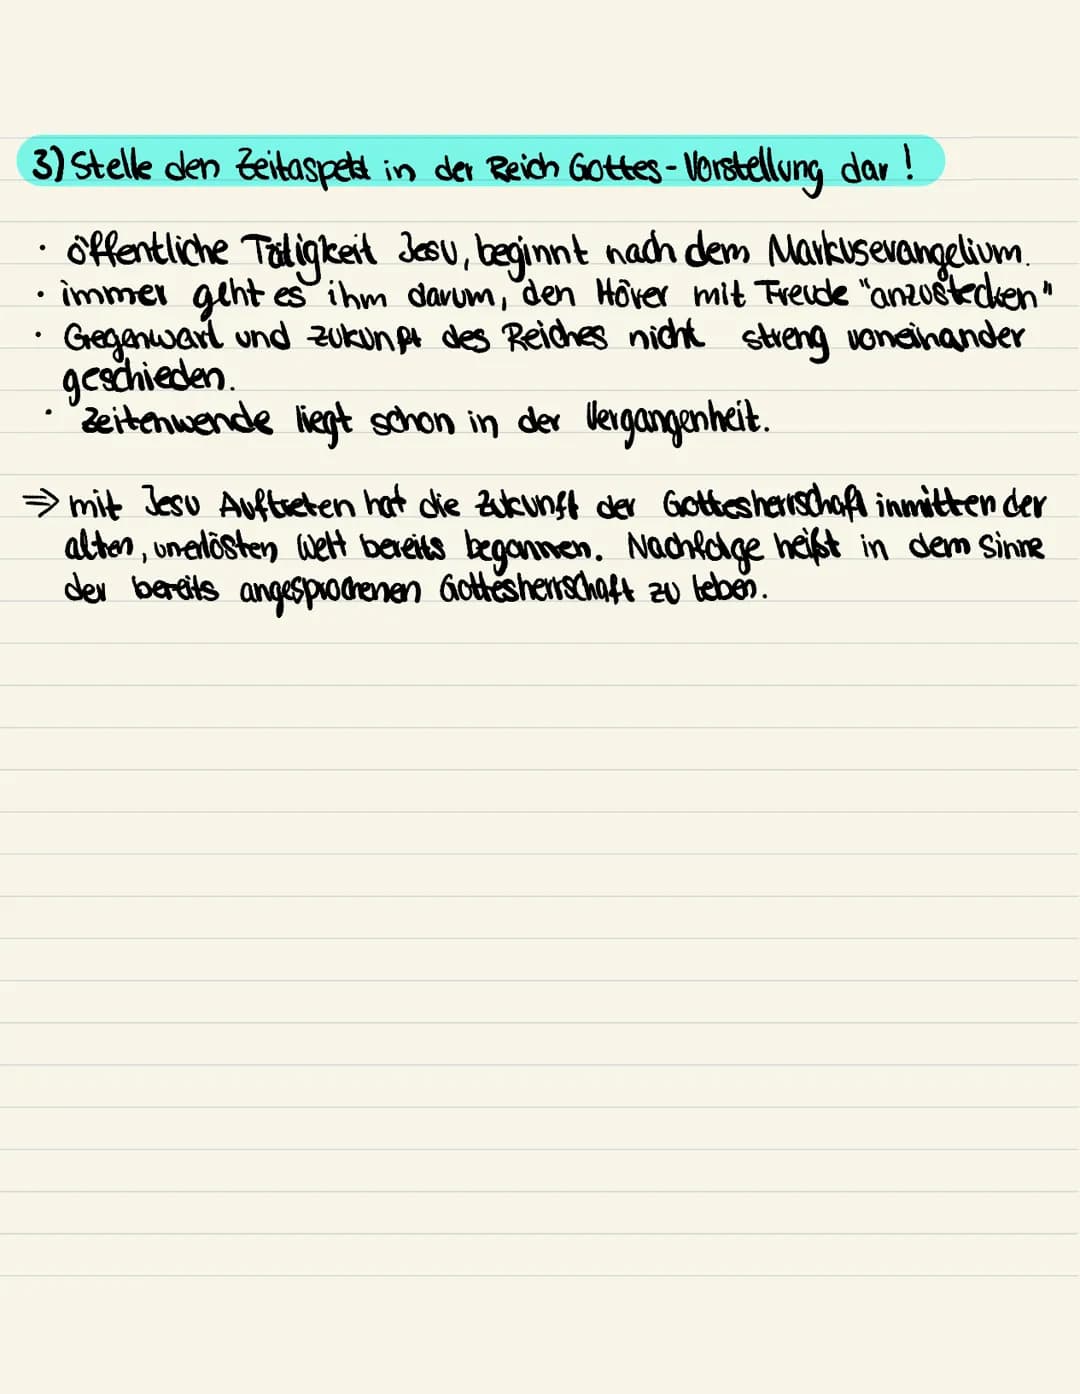 3) Stelle den Zeitaspekt in der Reich Gottes-Vorstellung dar!
· öffentliche Tätigkeit Jesu, beginnt nach dem Markusevangelium.
· immer geht es ihm darum, den Hörer mit Freude "anzustecken"
· Gegenwart und Zukunft des Reiches nicht streng voneinander
geschieden.
· Zeitenwende liegt schon in der Vergangenheit.
⇒ mit Jesu Auftreten hat die Zukunft der Gottesherrschaft inmitten der
alten, unerlösten Welt bereits begonnen. Nachfolge heißt in dem Sinne
der bereits angesprochenen Gottesherrschaft zu leben.